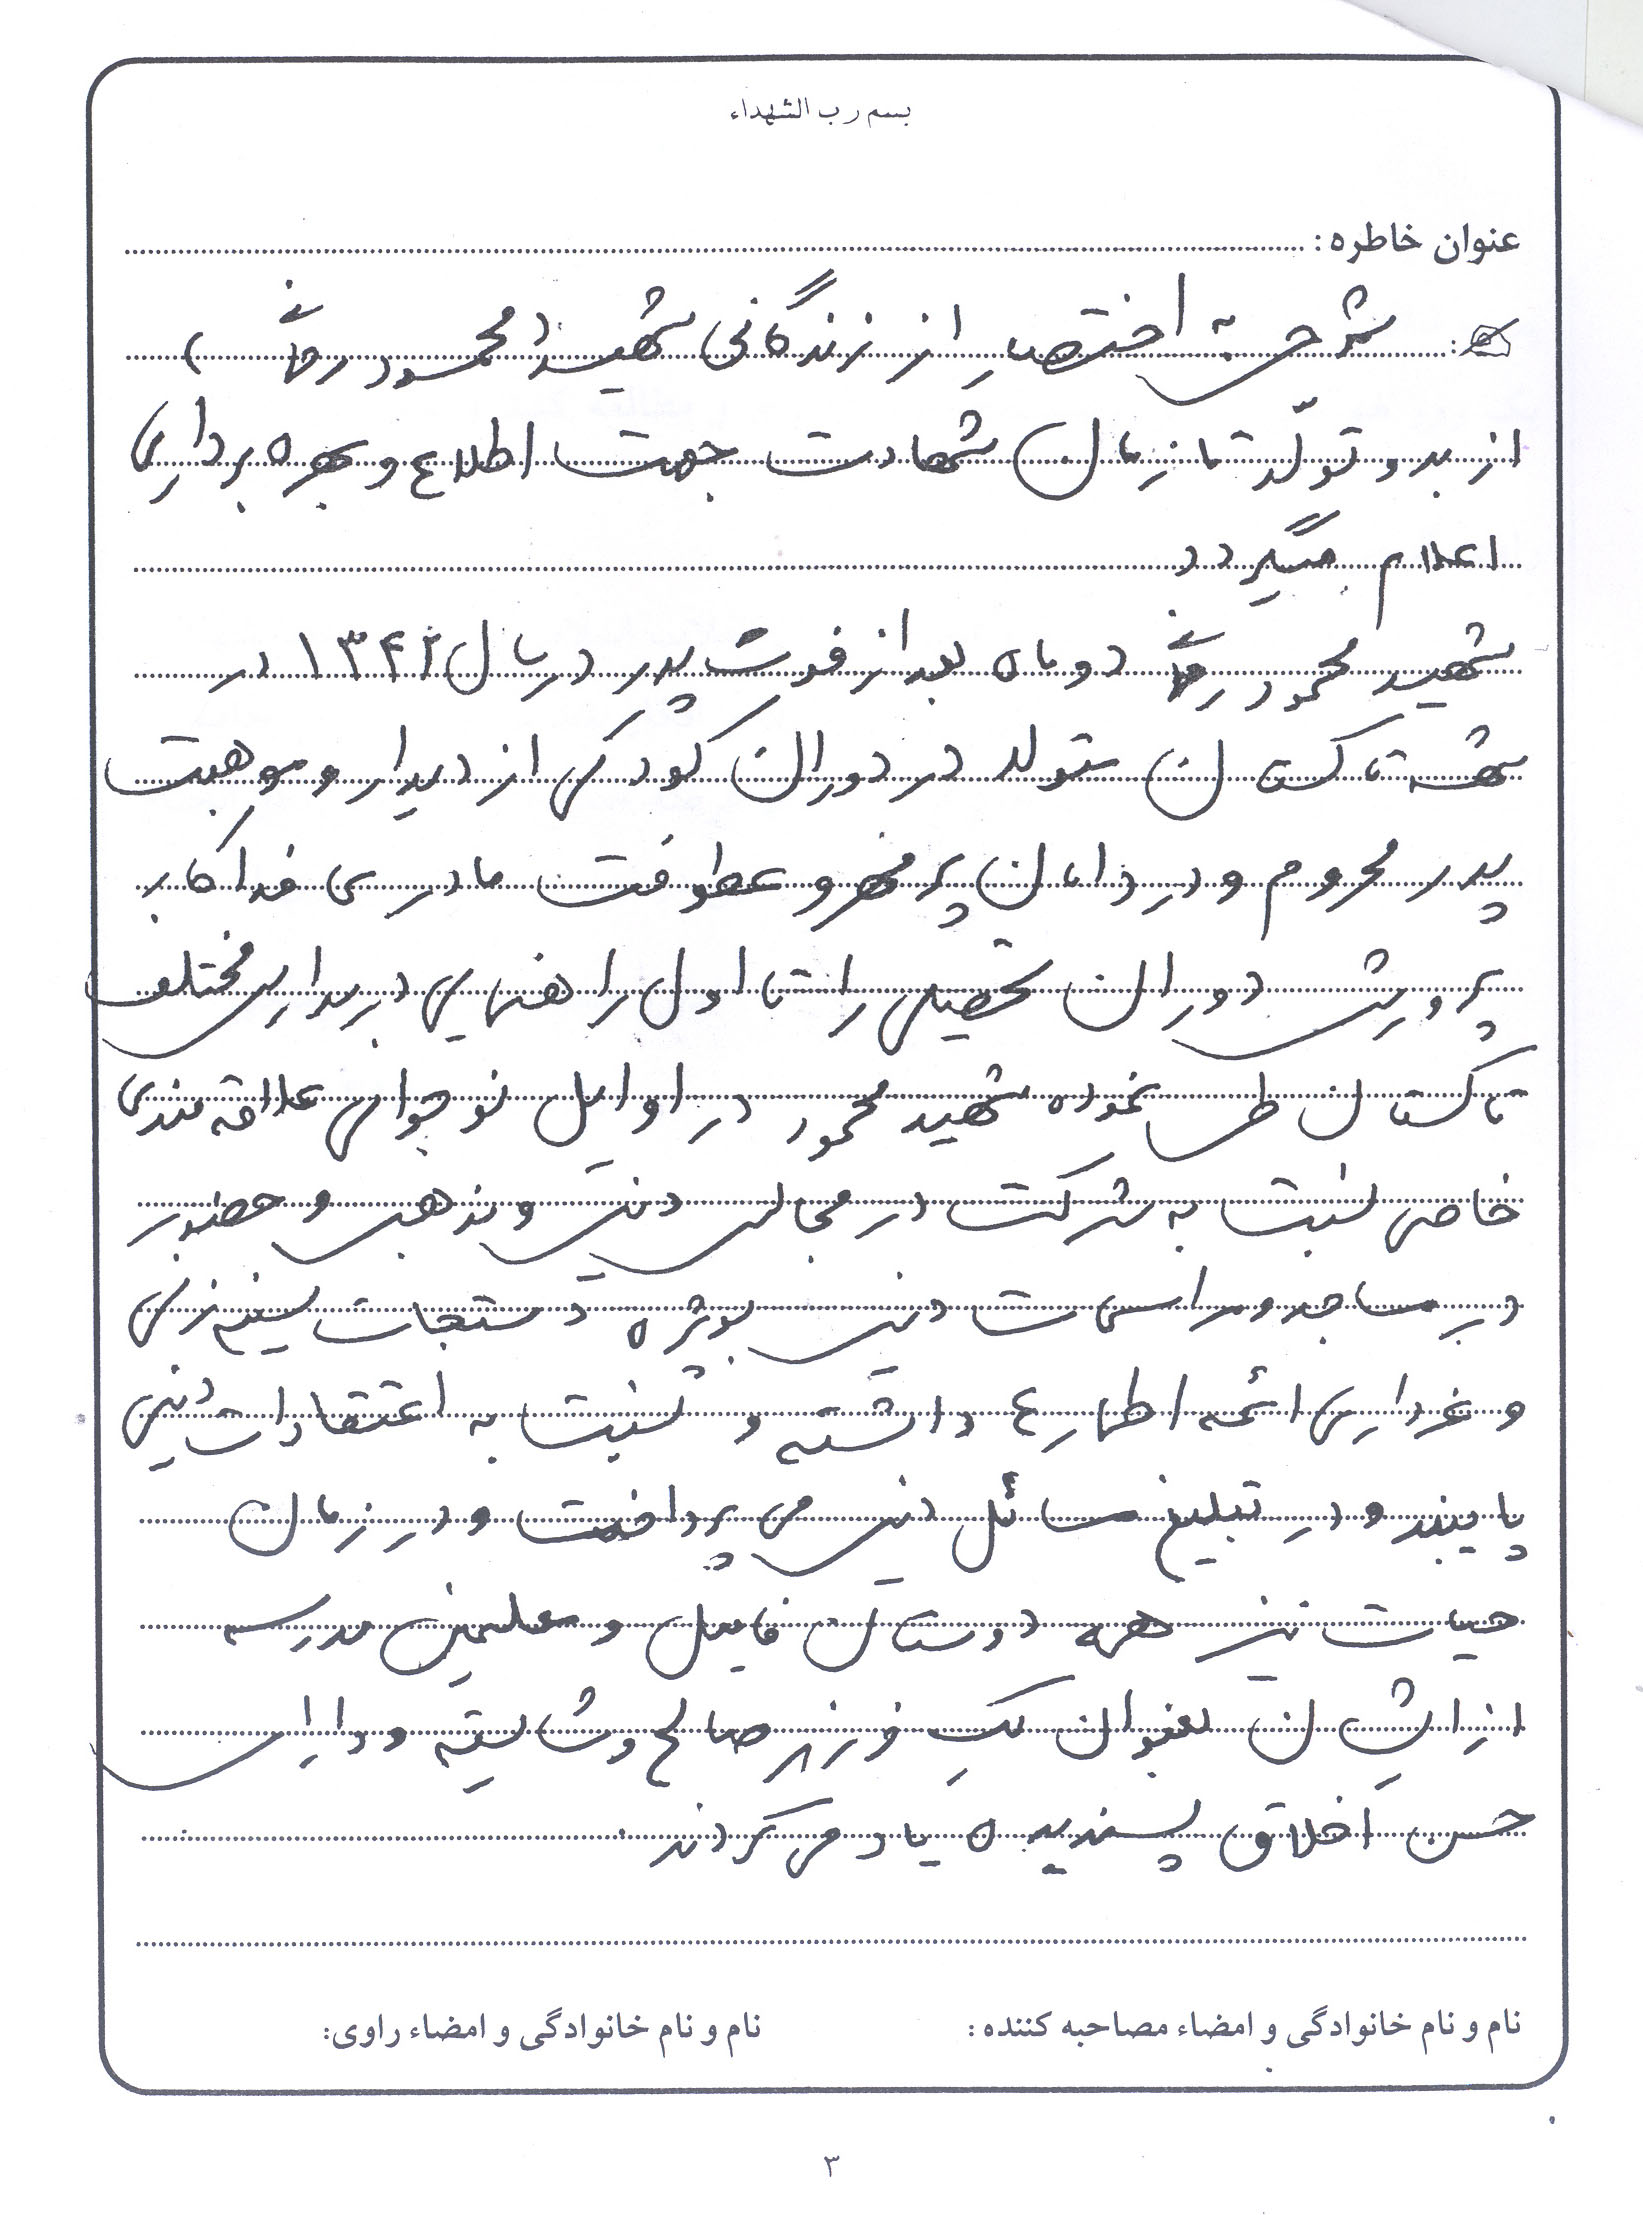 بسم رب الشهداء
عنوان خاطره :
شرحی به اختصار از زندگانی شهید (محمود رحمانی)
از بدو تولّد تا زمان شهادت جهت اطلاع و بهره برداری
اعلام میگردد
شهید محمود رحمانی دو ماه بعد از فوت پدر در سال ۱۳۴۲ در
شهرستان تاکستان متولد در دوران کودکی از دیدار و موهبت
پدر محروم و در دامان پر مهر و عطوفت مادری فداکار
پرورش دوران تحصیلی را تا اول راهنمایی در مدارس مختلف
تاکستان طی نموده شهید محمود در اوایل نوجوانی علاقه مندی
خاصی نسبت به شرکت در مجالس دینی و مذهبی و حضور
در مساجد و مراسمات دینی بویژه دستجات سینه زنی
و عزداری ائمه اطهار ع داشته و نسبت به اعتقادات دینی
پایبند و در تبلیغ مسائل دینی می پرداخت و در زمان
حیات نیز همه دوستان فامیل و معلمین مدرسه
از ایشان بعنوان یک فرزند صالح و شایسته و دارای
حسن اخلاق پسندیده یاد می کردند.
نام و نام خانوادگی و امضاء مصاحبه کننده : نام و نام خانوادگی و امضاء راوی:
۳